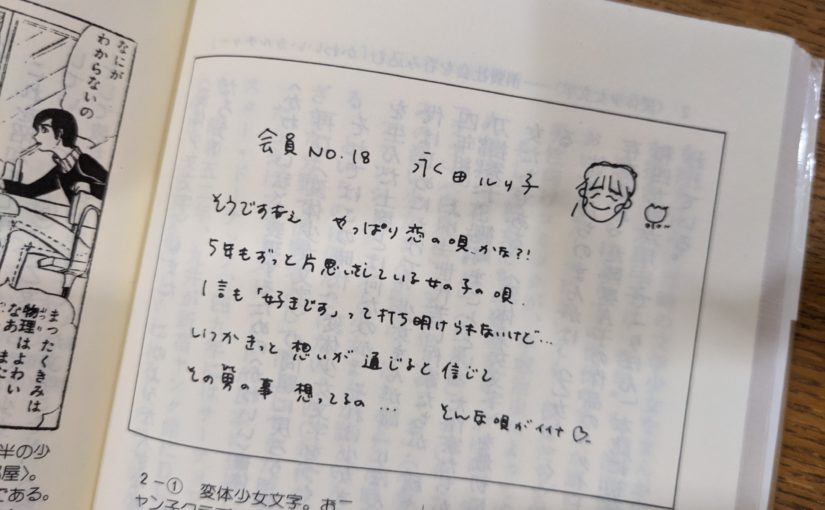 なにが
わからないの
まったくきみは
物理はよわい
半の少
である。
会員 NO.18 永田ルリ子
そうですねぇ やっぱり恋の唄、かな?!
5年もずっと片思いをしている女の子の唄.
1言も「好きです」って打ち明けられないけど…
いつかきっと 想いが 通じると信じて
その男の事 想ってるの… そんな唄がイイナ♡.
2−① 変体少女文字。おニ
ャン子クラブ